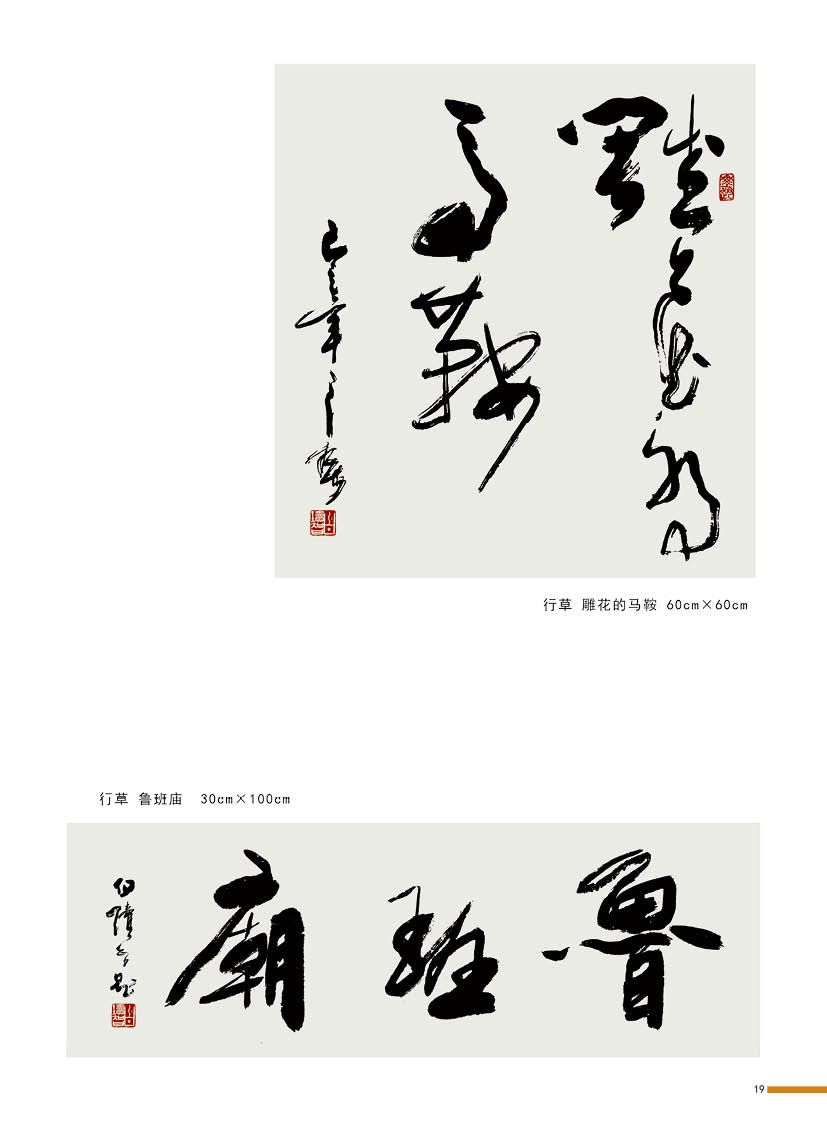 雕花的
馬鞍
行草 雕花的马鞍 60cm×60cm
行草 鲁班庙 30cm×100cm
魯班廟
19